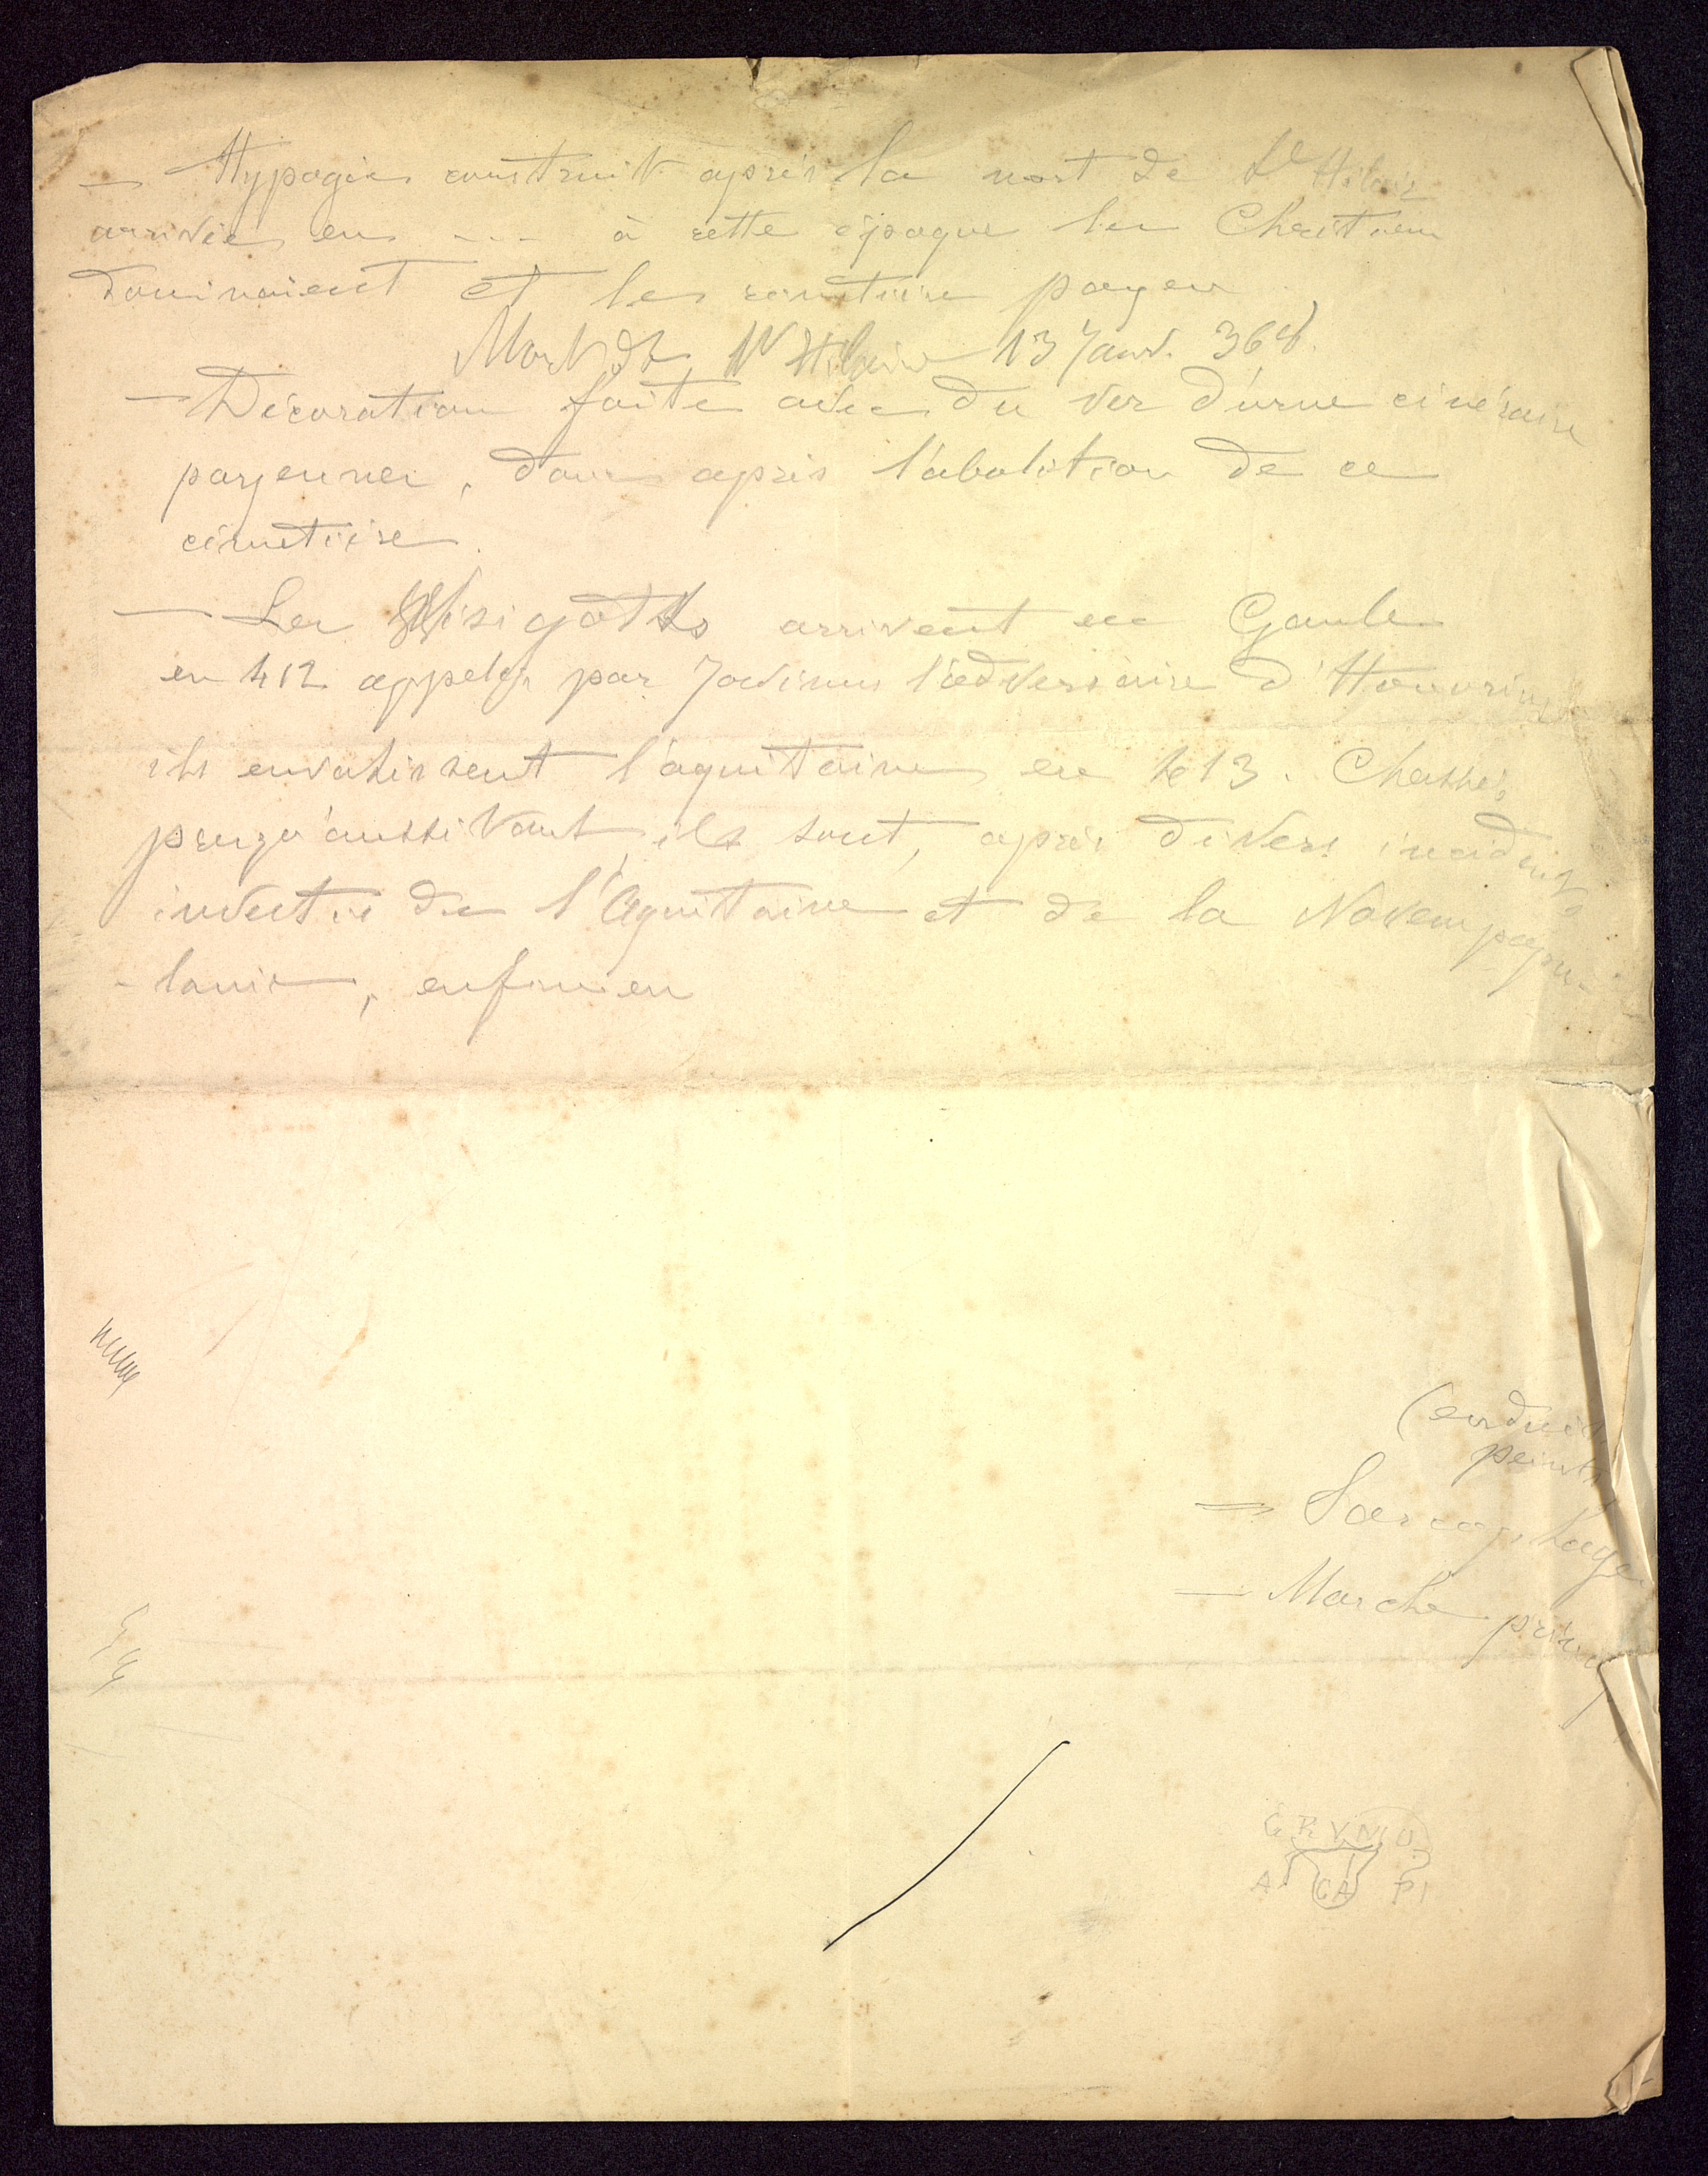 — Hypogée construit après la mort de St Hilaire
arrivée en --- à cette époque les Chrétiens
dominaient et les cimetière payen
Mort de St Hilaire 13 Janv. 368.
— Décoration faite avec du ver d'urne cinéraire
payennes, donc après l'abolition de ce
cimetière.
— Les Wisigoths arrivent en Gaule
en 412 appelés par Jovinus l'adversaire d'Honorius
ils envahissent l'aquitaine en 413. Chassés
presqu'aussitôt, ils sont, après divers incidents
investis de l'Aquitaine et de la Novempopu-
-lanie, enfin en
(enduits
peints
— Sarcophage
— Marche
GRVNIU
A CA PI